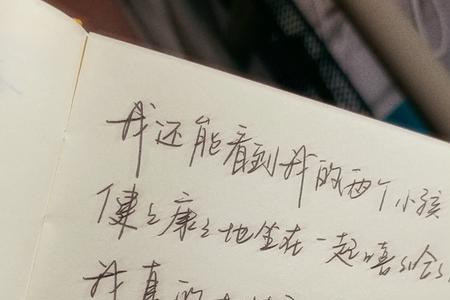 我还能看到我的两个小孩
健々康々地坐在一起嘻々哈々
我真的